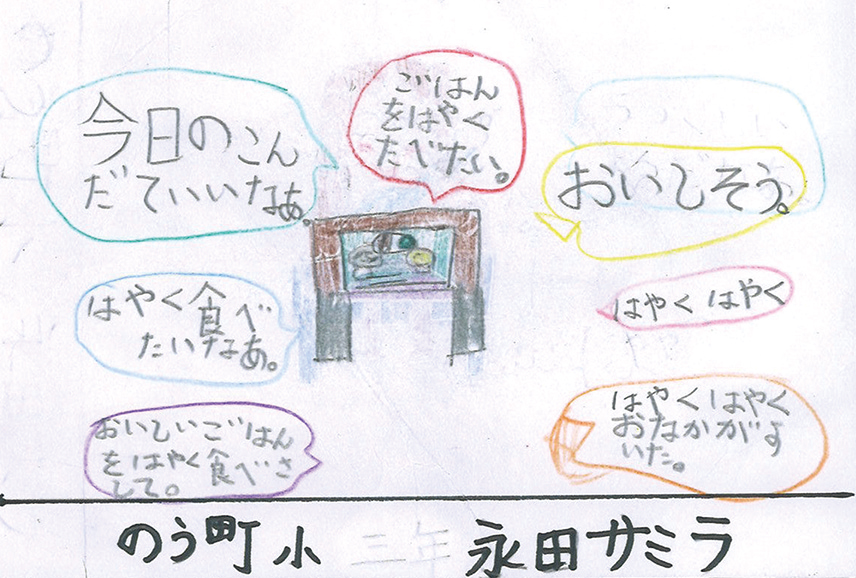 今日のこん
だていいなあ。
ごはん
をはやく
たべたい。
おいしそう。
はやく食べ
たいなあ。
はやく はやく
おいしいごはん
をはやく食べさ
して。
はやくはやく
おなかがす
いた。
のう町小 三年 永田サミラ